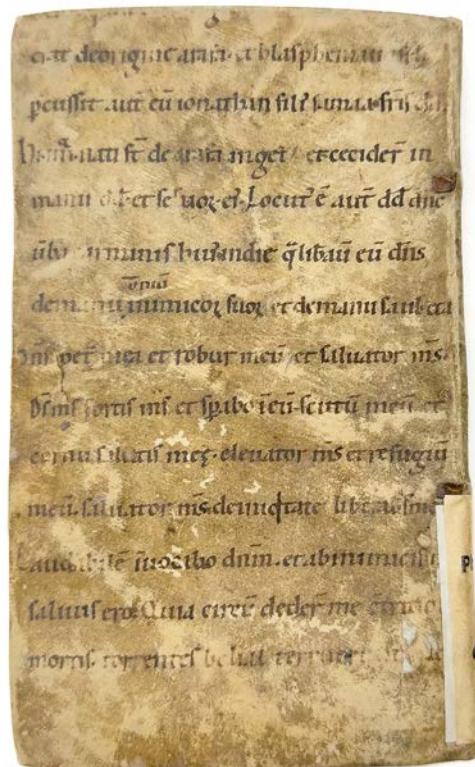 erat de origine arafa. et blasphemauit
p̄cussit aut̄ eū ionathan fili᾽ samaa fr̄is
Hi nati st̄ de arafa in get / et cecider̄ in
manu dd̄ et seruoꝝ ei᾽. Locut᾽ ē aut̄ dd̄ dn̄o
ūba carminis hui᾽ in die q̄ lib̄auit eū dn̄s
de manu omniū inimicoꝝ suoꝝ et de manu saul et ait
Dn̄s petra mea et robur meū et saluator ms̄
Ds̄ ms̄ fortis ms̄ et sp̄abo ī eū. scutū meū et
cornu salutis meę. eleuator ms̄ et refugiū
meū. saluator ms̄ de iniqͥtate lib̄abis me
Laudabilē īuocabo dn̄m. et ab inimicis
saluus ero. Quia circū deder̄ me
mortis. torrentes belial